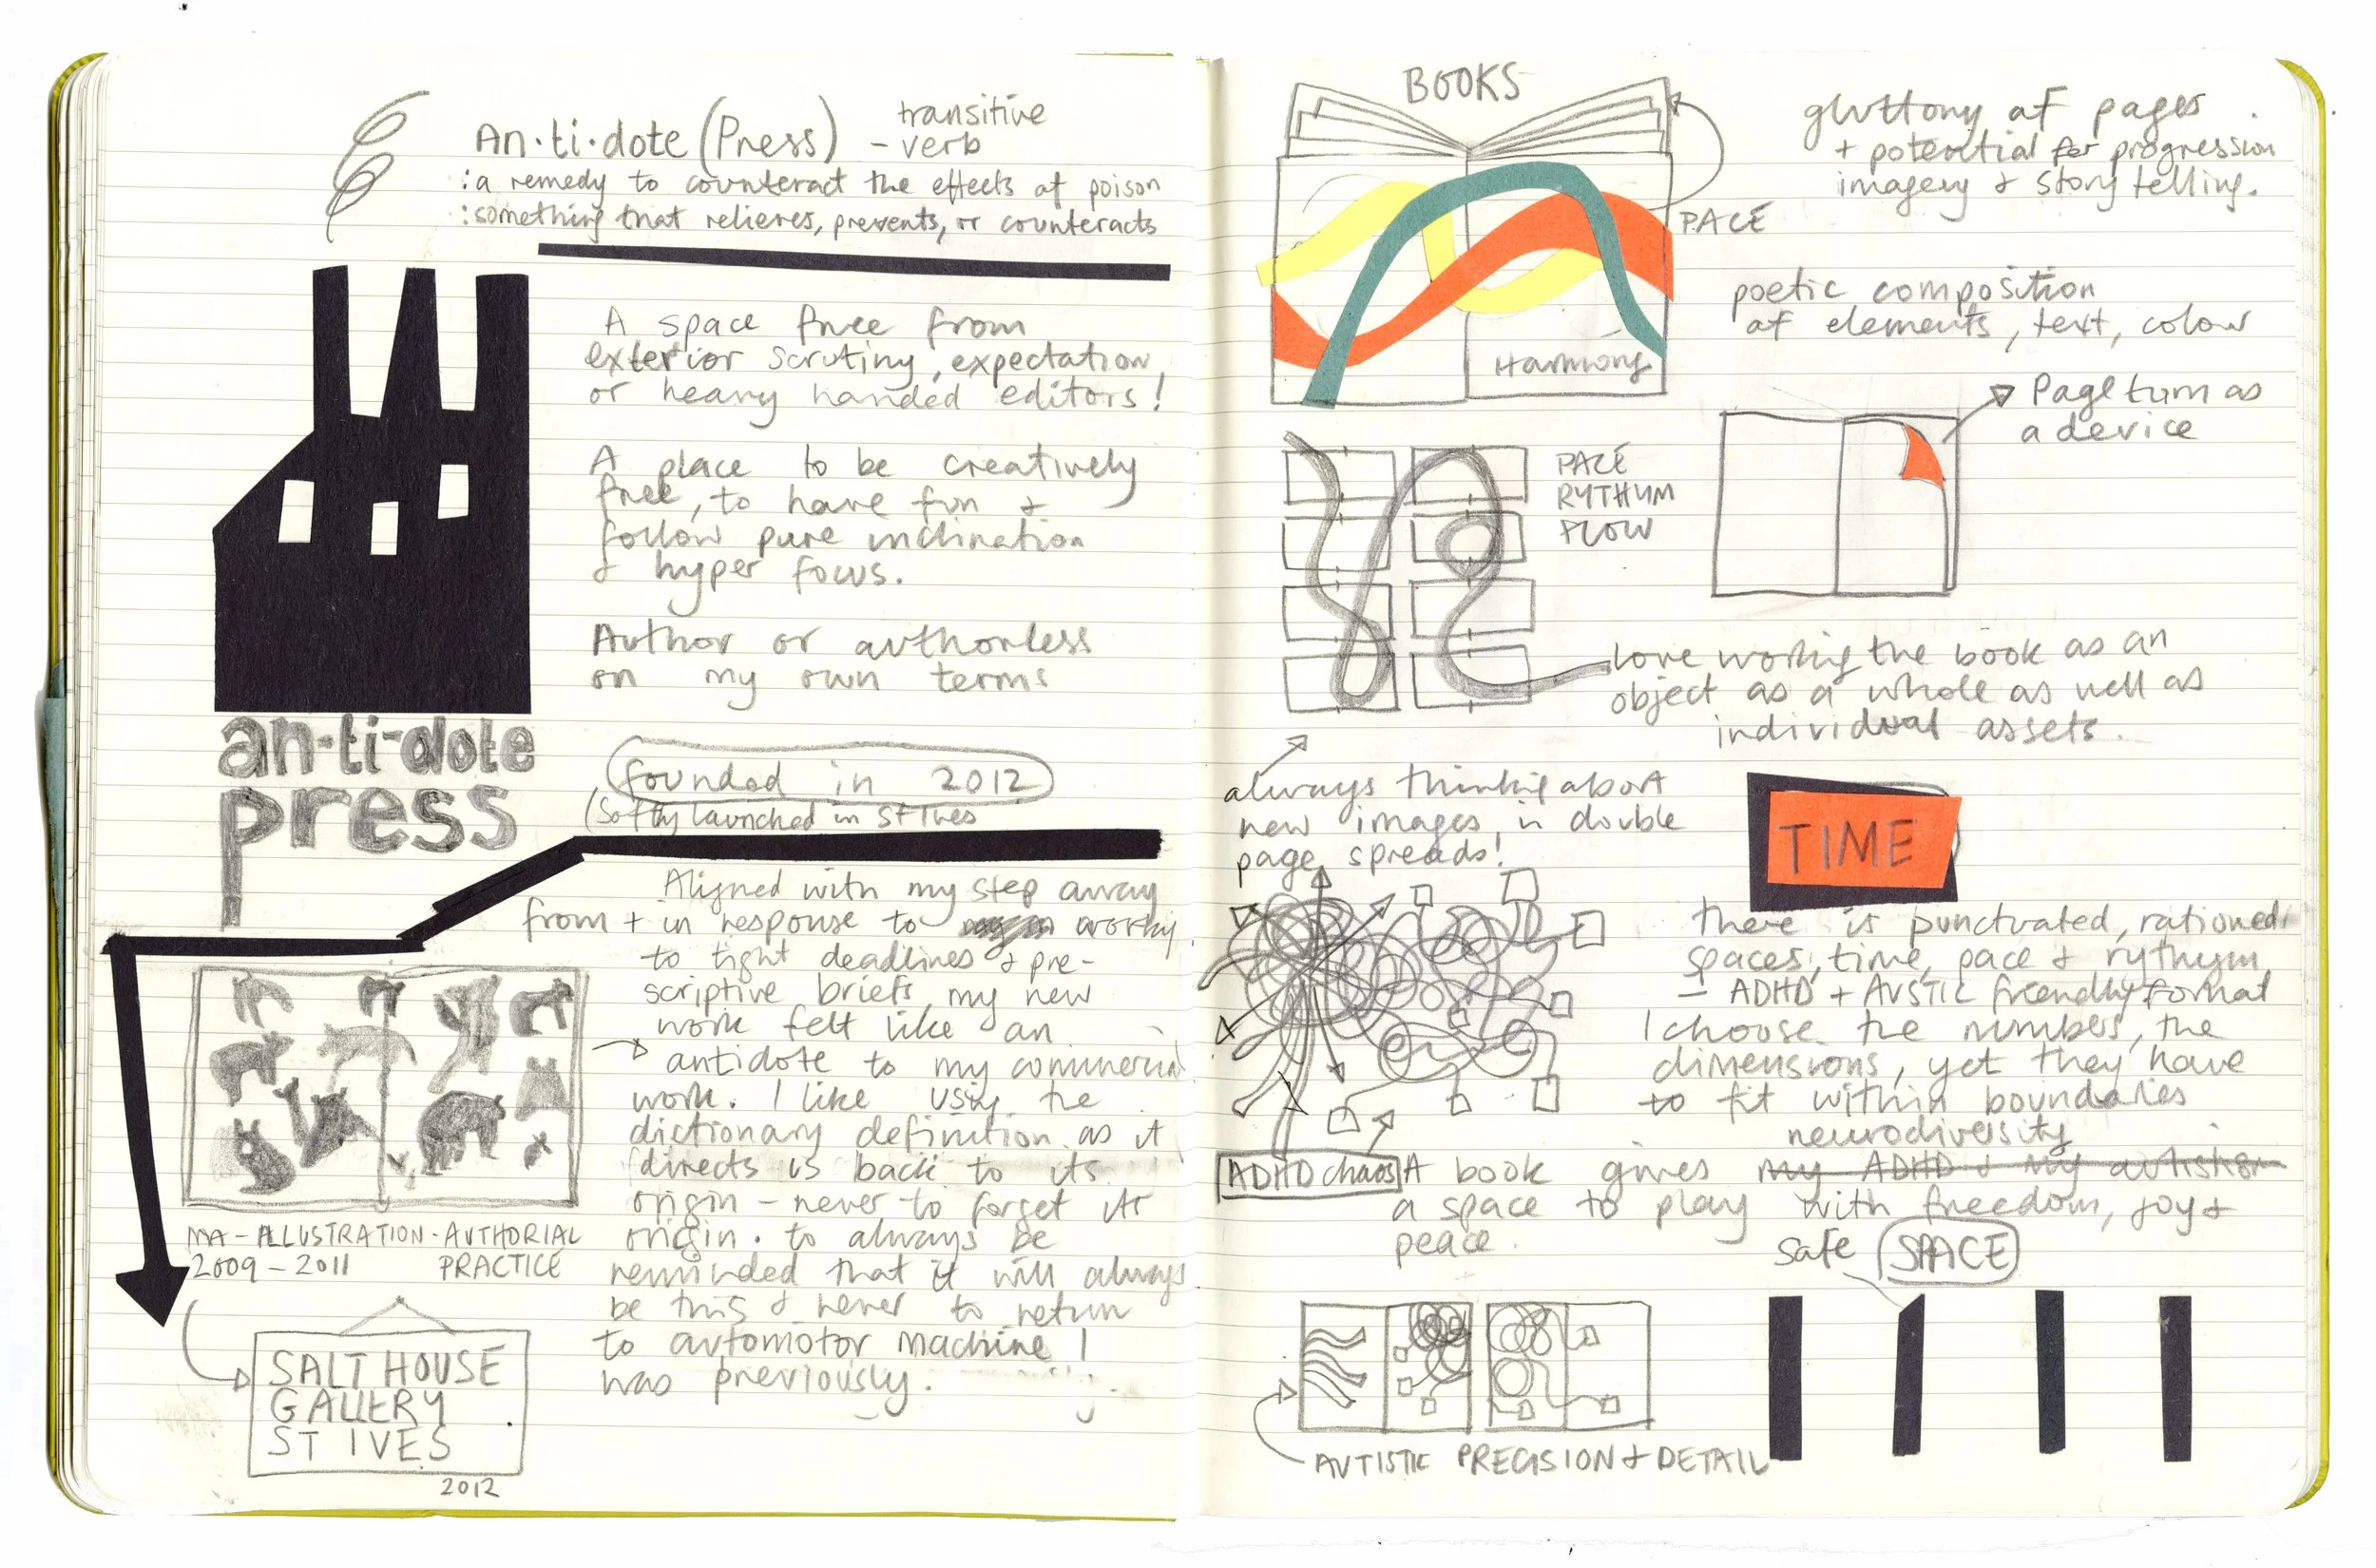 An·ti·dote (Press) – transitive verb
: a remedy to counteract the effects of poison
: something that relieves, prevents, or counteracts
A space free from
exterior scrutiny, expectation,
or heavy handed editors!
A place to be creatively
free, to have fun +
follow pure inclination
& hyper focus.
Author or authorless
on my own terms
an·ti·dote
press
founded in 2012
(softly launched in St Ives
Aligned with my step away
from + in response to working
to tight deadlines & pre-
scriptive briefs, my new
work felt like an
antidote to my commercial
work. I like using the
dictionary definition as it
directs is back to its
origin – never to forget its
origin. to always be
reminded that it will always
be this & never to return
to automotor machine I
was previously.
MA – ILLUSTRATION · AUTHORIAL
2009 – 2011 PRACTICE
SALT HOUSE
GALLERY
ST IVES
2012
BOOKS
PACE
Harmony
gluttony of pages
+ potential for progression
imagery & story telling.
poetic composition
of elements, text, colour
Page turn as
a device
PACE
RYTHUM
FLOW
love working the book as an
object as a whole as well as
individual assets.
always thinking about
new images, in double
page spreads!
TIME
there is punctuated, rationed
spaces, time, pace & rythym
– ADHD + AUSTIC friendly format
I choose the numbers, the
dimensions, yet they have
to fit within boundaries
neurodiversity
ADHD chaos
A book gives my ADHD & my autistism
a space to play with freedom, joy &
peace.
safe SPACE
AUTISTIC PRECISION & DETAIL